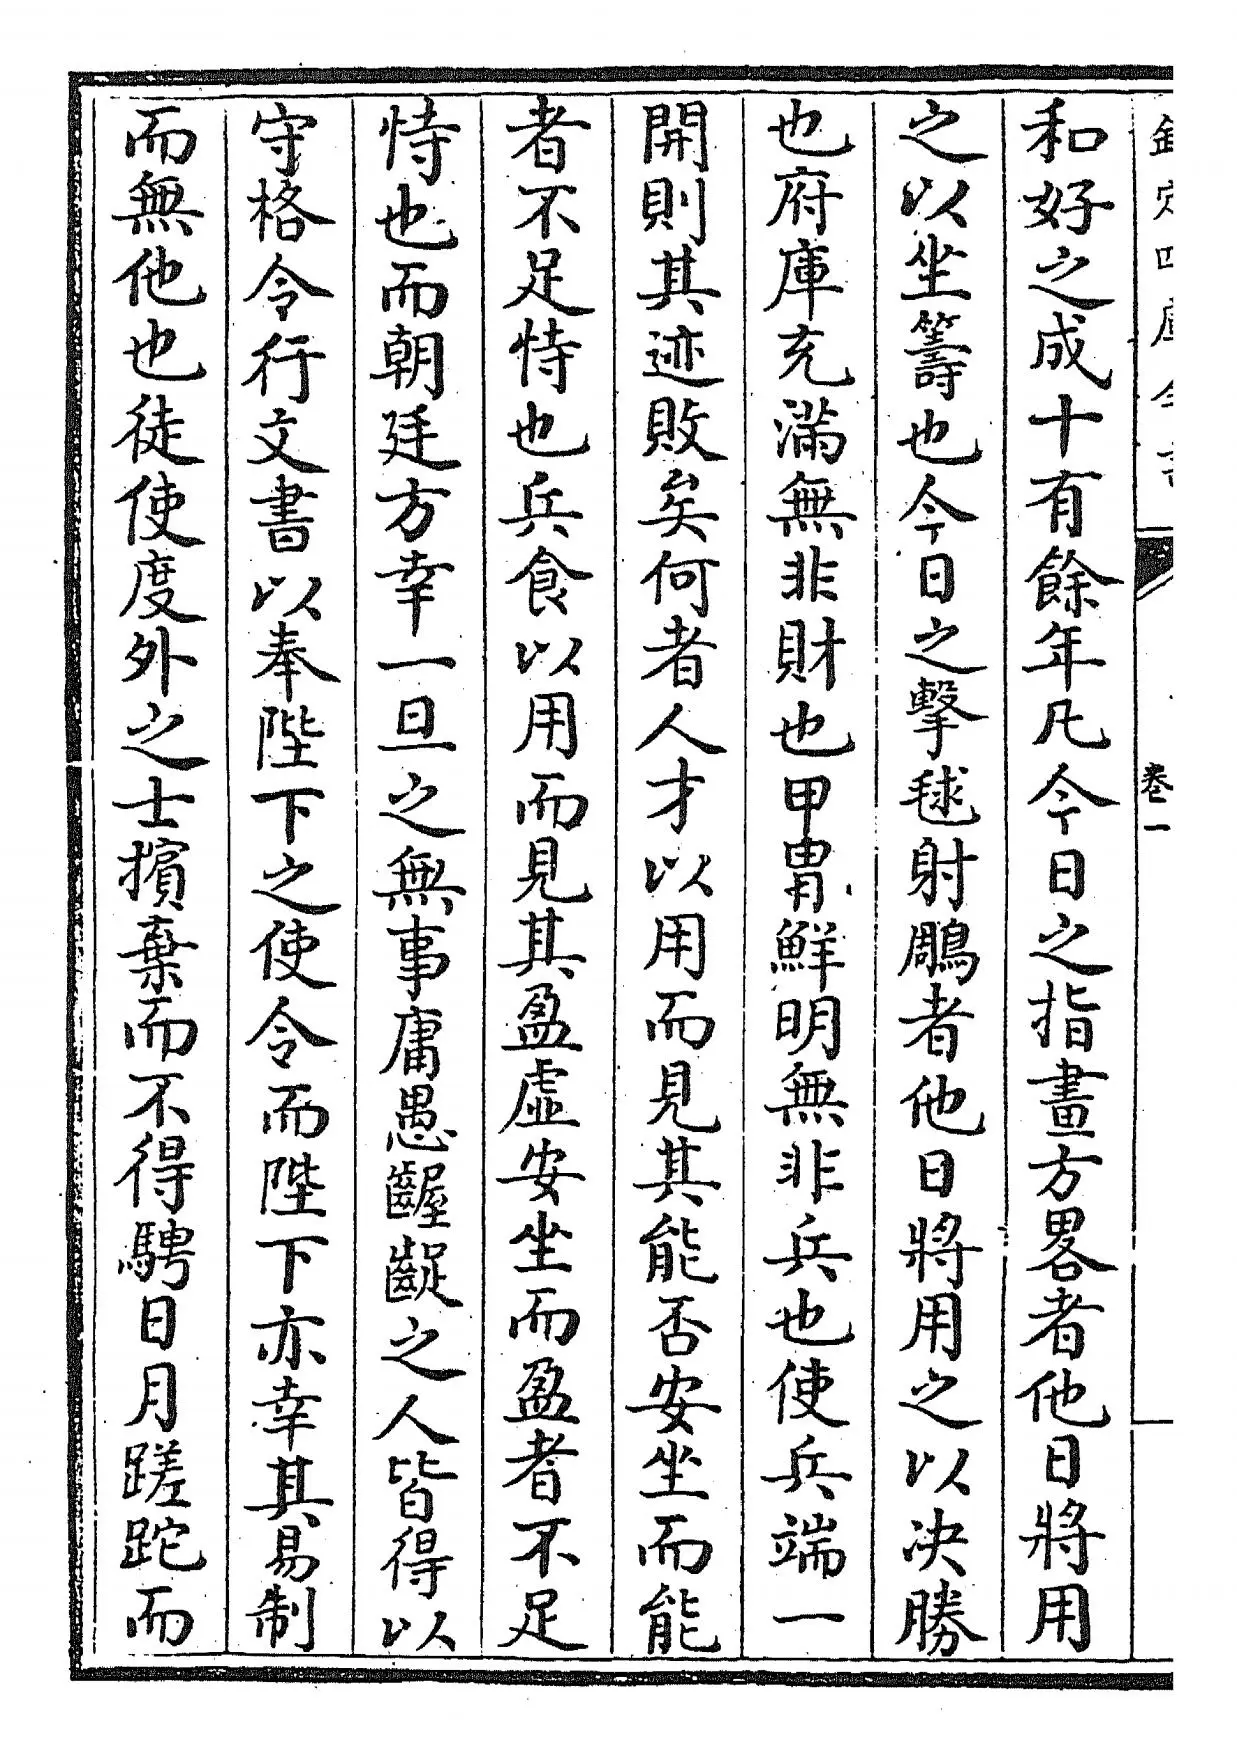 欽定四庫全書
卷一
和好之成十有餘年凡今日之指畫方畧者他日將用
之以坐籌也今日之擊毬射鵰者他日將用之以决勝
也府庫充滿無非財也甲胄鮮明無非兵也使兵端一
開則其迹敗矣何者人才以用而見其能否安坐而能
者不足恃也兵食以用而見其盈虛安坐而盈者不足
恃也而朝廷方幸一旦之無事庸愚齷齪之人皆得以
守格令行文書以奉陛下之使令而陛下亦幸其易制
而無他也徒使度外之士擯棄而不得騁日月蹉跎而